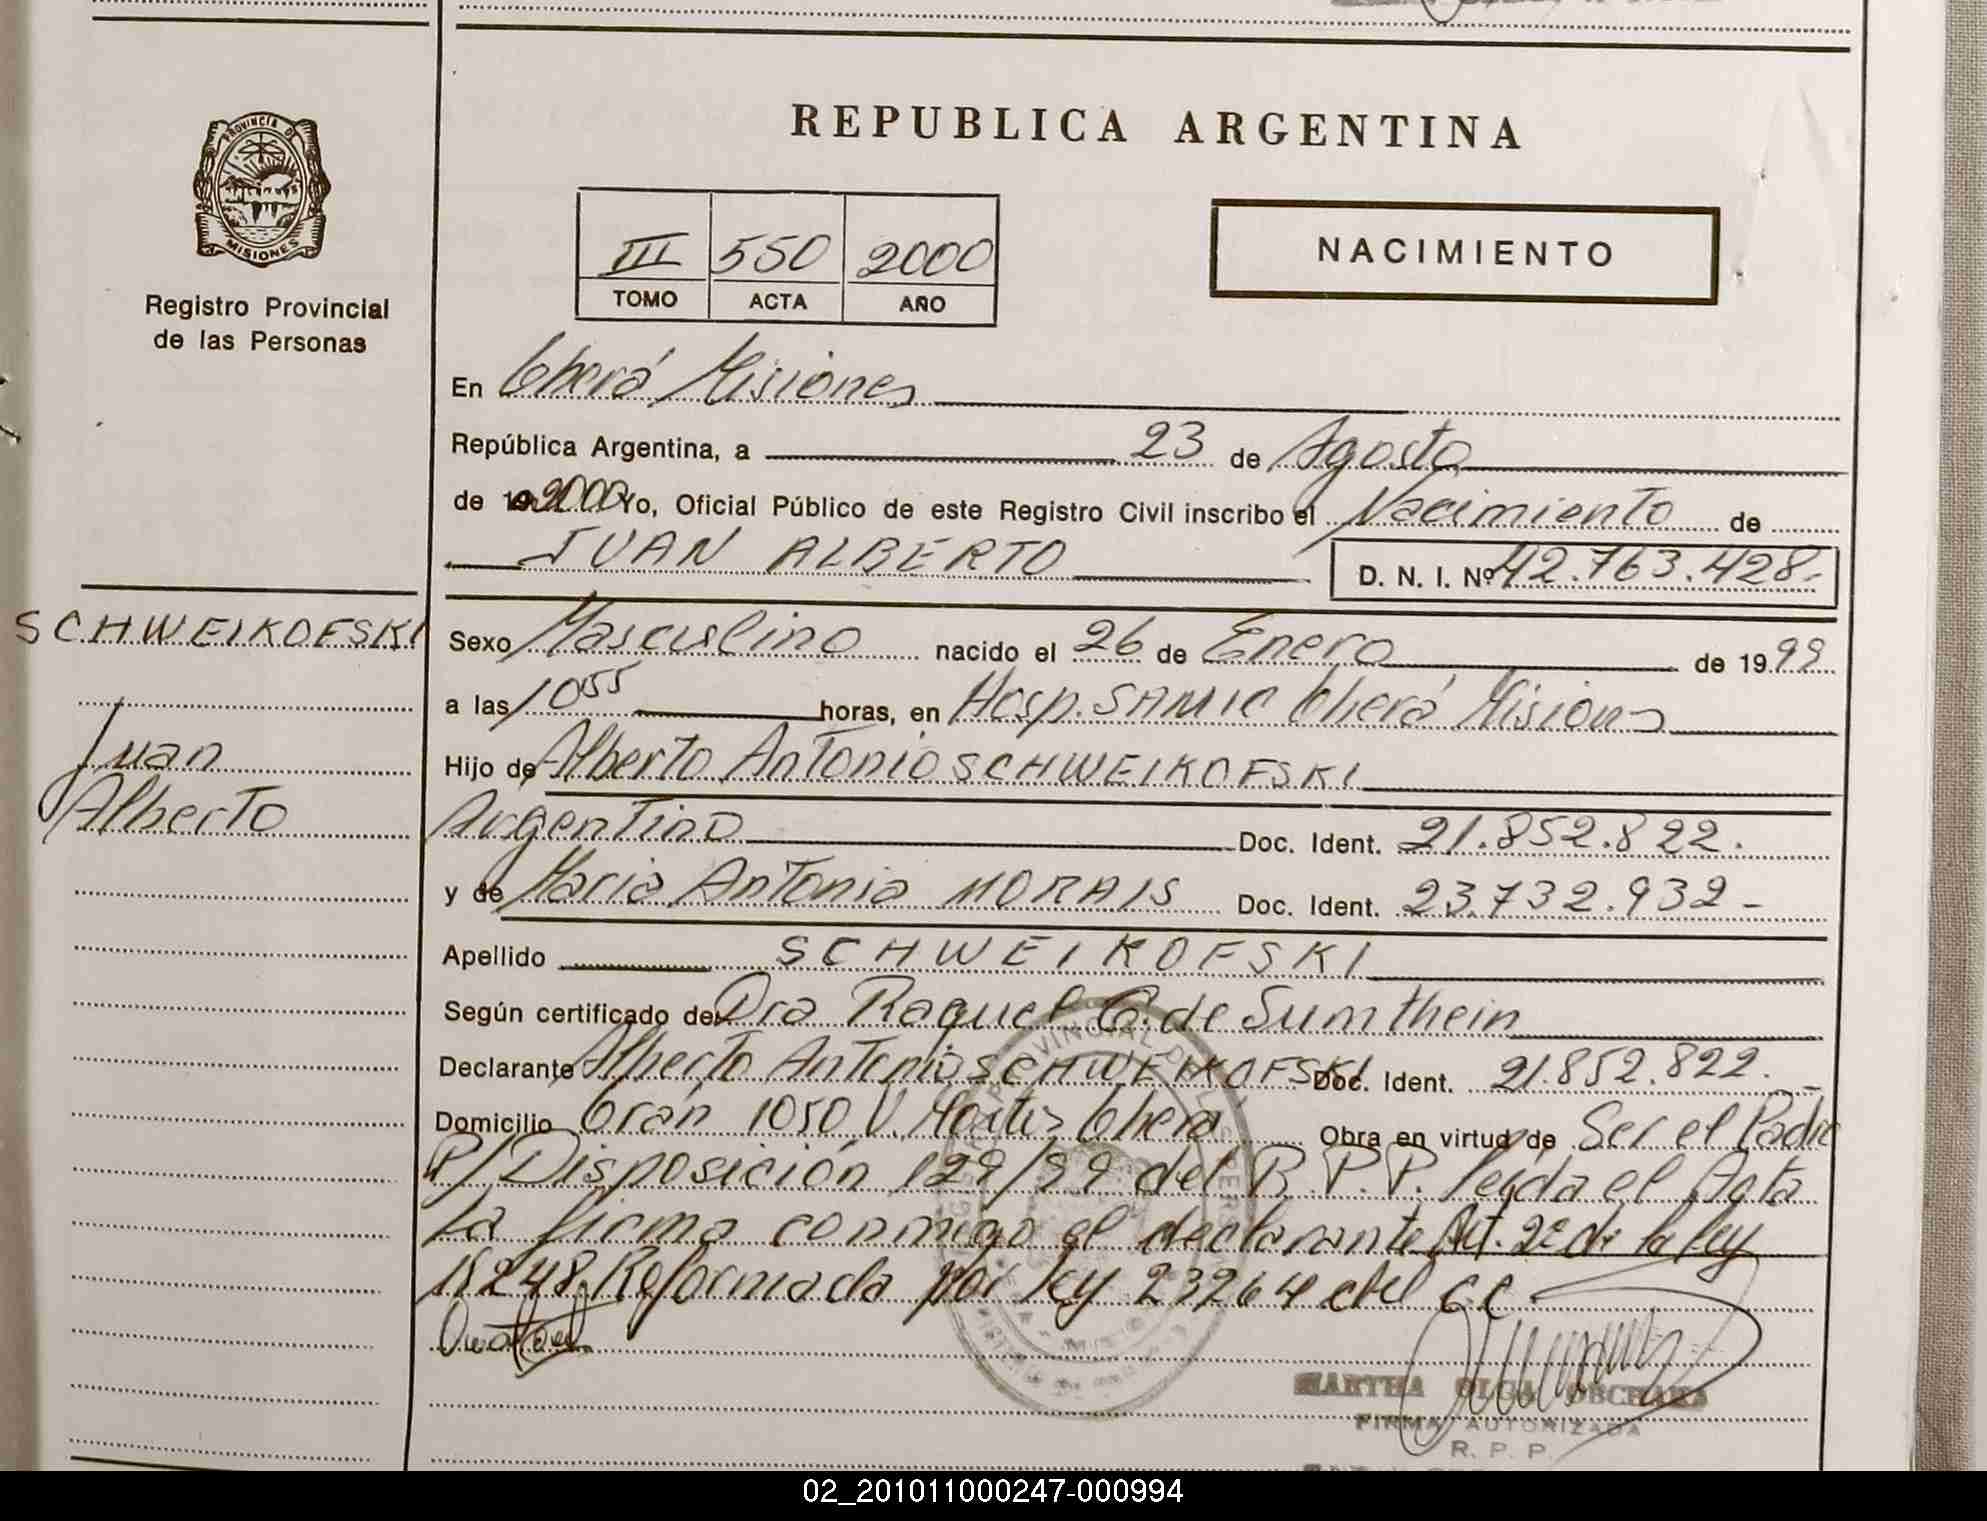 PROVINCIA DE
MISIONES
Registro Provincial
de las Personas
SCHWEIKOFSKI
Juan
Alberto
REPUBLICA ARGENTINA
III 550 2000
TOMO ACTA AÑO
NACIMIENTO
En Oberá Misiones
República Argentina, a 23 de Agosto
de 19 2000 Yo, Oficial Público de este Registro Civil inscribo el Nacimiento de
JUAN ALBERTO D. N. I. Nº 42.763.428.-
Sexo Masculino nacido el 26 de Enero de 19 99
a las 10 55 horas, en Hosp. SAMIC Oberá Misiones
Hijo de Alberto Antonio SCHWEIKOFSKI
Argentino Doc. Ident. 21.852.822.
y de Maria Antonia MORAIS Doc. Ident. 23.732.932-
Apellido SCHWEIKOFSKI
Según certificado de Dra Raquel G. de Sumthein
Declarante Alberto Antonio SCHWEIKOFSKI Doc. Ident. 21.852.822.-
Domicilio Orán 1050 V. Oberá Obra en virtud de Ser el Padre
P/Disposición 129/99 del R.P.P. leída el Acta
La firma conmigo el declarante Art. 2º de la ley
18248 Reformada por ley 23264 del CC
MARTHA OLGA
FIRMA AUTORIZADA
R. P. P.
02_201011000247-000994